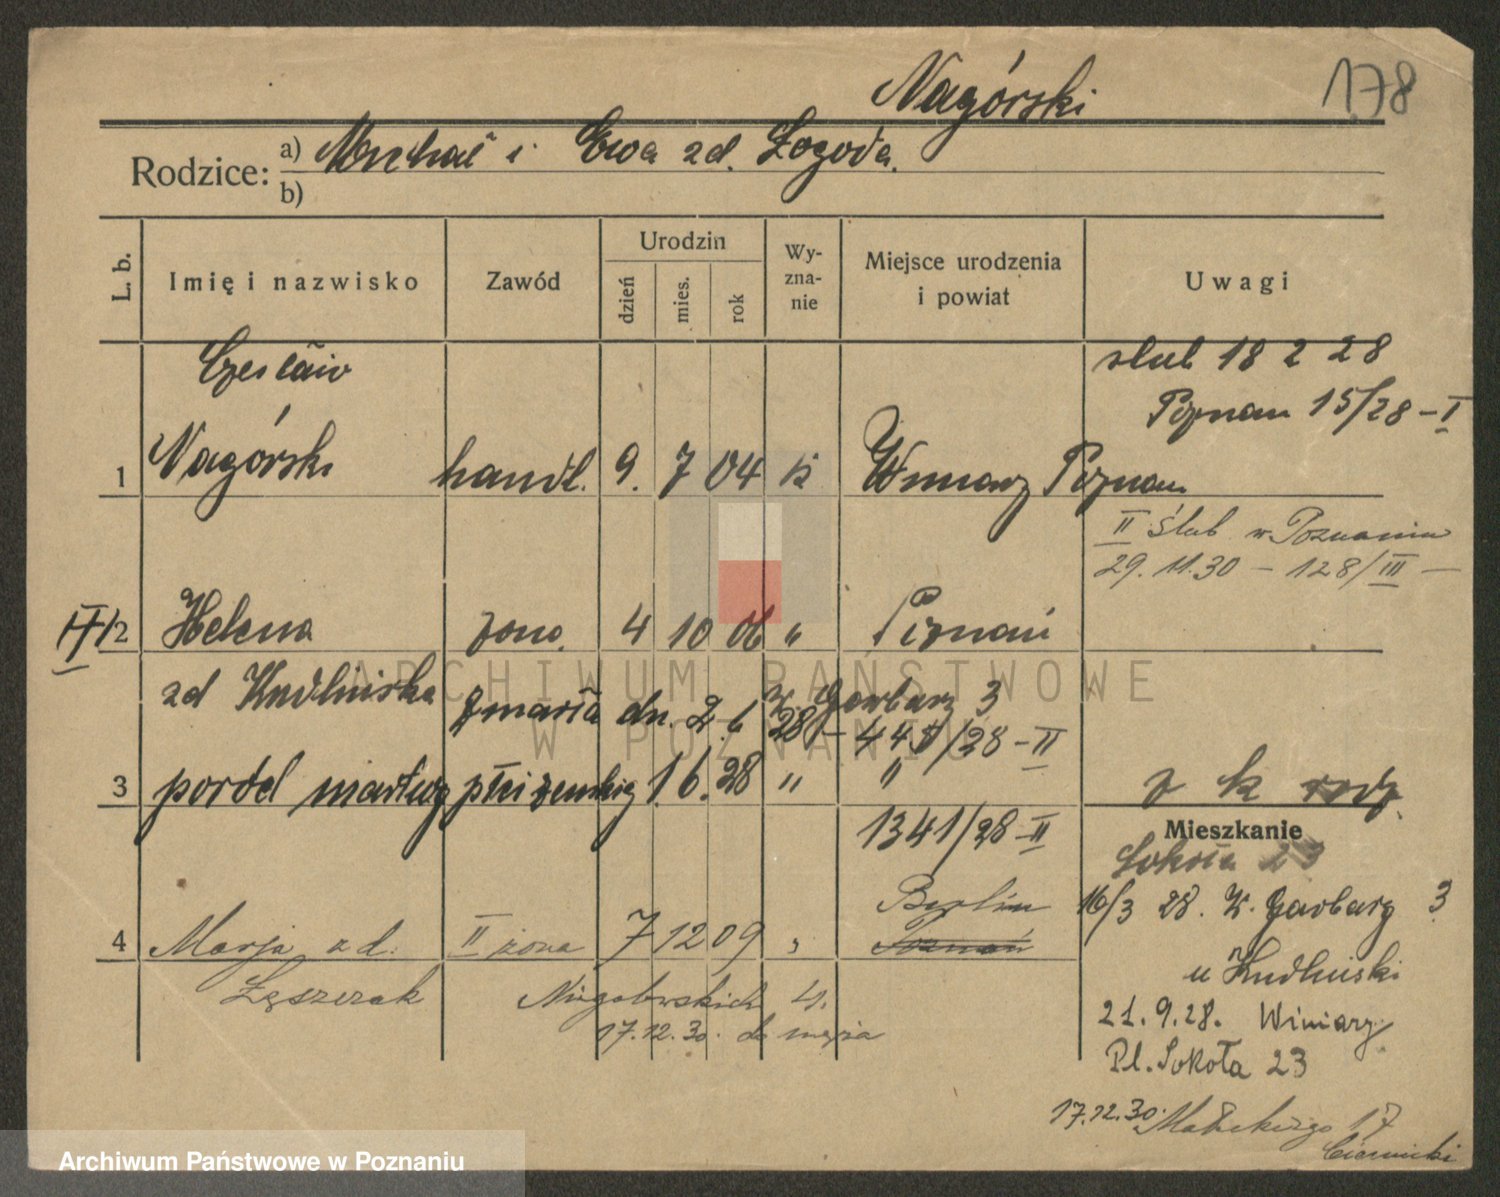 Nagórski 178
Rodzice: a) Michał i Ewa zd. Łagoda.
b)
L. b. Imię i nazwisko Zawód Urodzin dzień mies. rok Wy-zna-nie Miejsce urodzenia i powiat Uwagi
Czesław ślub 18 2 28
Poznań 15/28-I
1 Nagórski handl. 9. 7 04 k Winiary Poznań
II ślub w Poznaniu
29.11.30 – 128/III –
II/2 Helena żona 4 10 06 " Poznań
zd Kudlińska zmarła dn. 2.6 28 – W. Garbary 3
445/28-II
3 poród martwy płci żeńskiej 1.6.28 " "
z k
1341/28-II
Mieszkanie
Sokoła 23
Berlin 16/3 28. W. Garbary 3
4 Marja zd. II żona 7 12 09 " Poznań
u Kudliński
Niegolewskich
17.12.30. do męża
21.9.28. Winiary
Pl. Sokoła 23
17.12.30. Małeckiego 17
ARCHIWUM PAŃSTWOWE
W POZNANIU
Archiwum Państwowe w Poznaniu